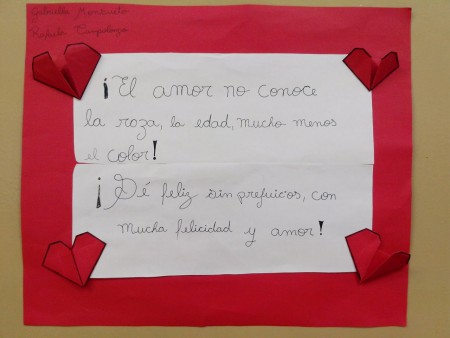 Gabriella
Rafaela
¡El amor no conoce
la roza, la edad, mucho menos
el color!
¡Sé feliz sin prejuicos, con
mucha felicidad y amor!